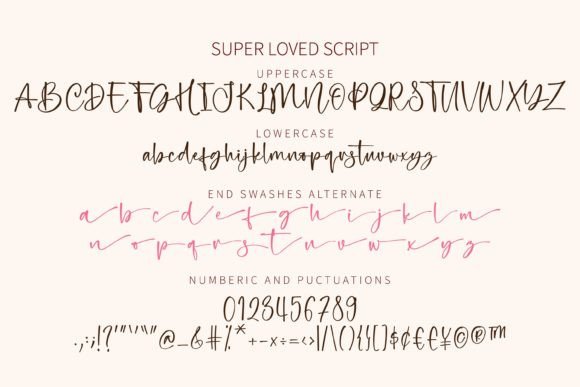 SUPER LOVED SCRIPT
UPPERCASE
ABCDEFGHIJKLMNOPQRSTUVWXYZ
LOWERCASE
abcdefghijklmnopqrstuvwxyz
END SWASHES ALTERNATE
a b c d e f g h i j k l m
n o p q r s t u v w x y z
NUMBERIC AND PUCTUATIONS
0123456789
.,:;!?'"'‘“”@_&#%*+-×÷=<>|/\(){}[]$¢£€¥©®™